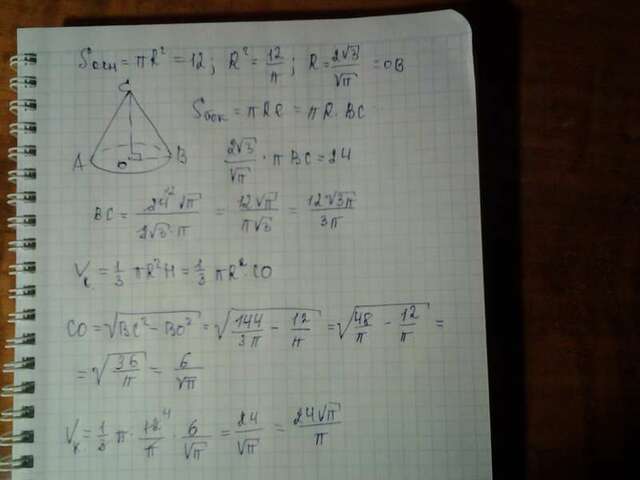 Sосн = πR² = 12; R² = 12/π; R = 2√3/√π = OB
C
Sбок = πRℓ = πR·BC
A B
O
2√3/√π · πBC = 24
BC = 24¹²√π/2√3·π = 12√π/π√3 = 12√3π/3π
Vк = 1/3 πR²H = 1/3 πR²·CO
CO = √(BC² − BO²) = √(144/3π − 12/π) = √(48/π − 12/π) =
= √(36/π) = 6/√π
Vк = 1/3 π · 12⁴/π · 6/√π = 24/√π = 24√π/π